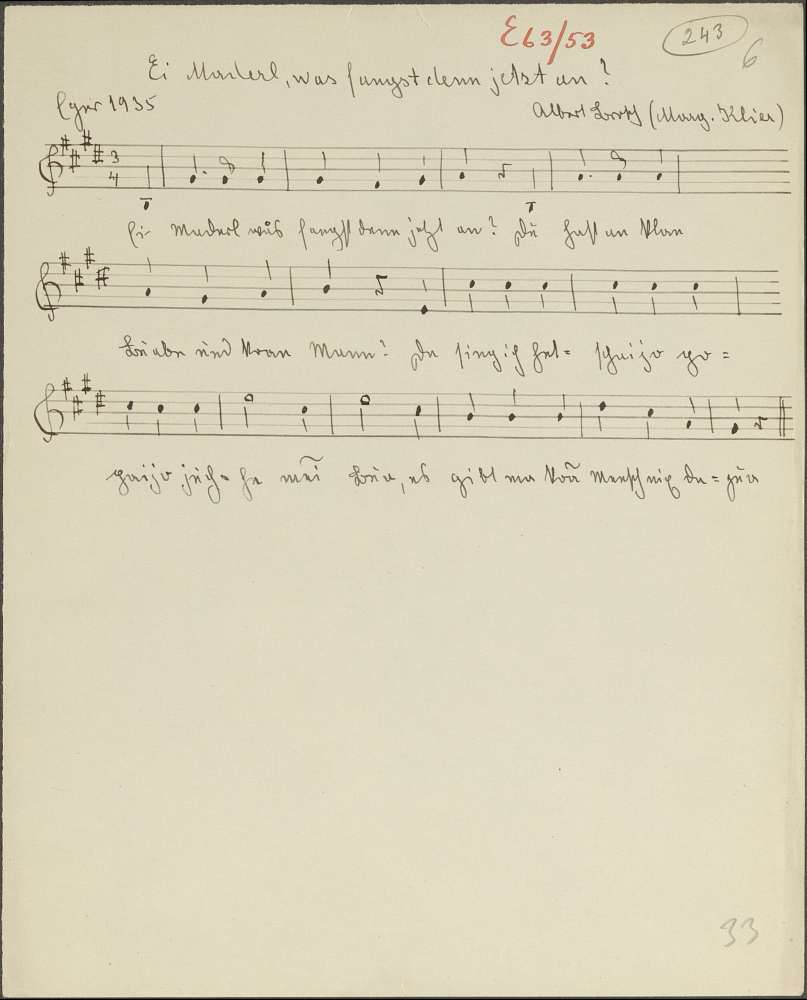 E63/53
243
6
Ei Maderl, was fangst denn jetzt an?
Eger 1935
Albert Brosch (Marg. Klier)
3
4
Ei Maderl wås fangst denn jetzt an? Du hast an klan
Buabn und koan Mann! Da sing ich hal= scheijo po=
peijo juch= he mei Bua, es gibt ma koã Mensch nix da= zua
33